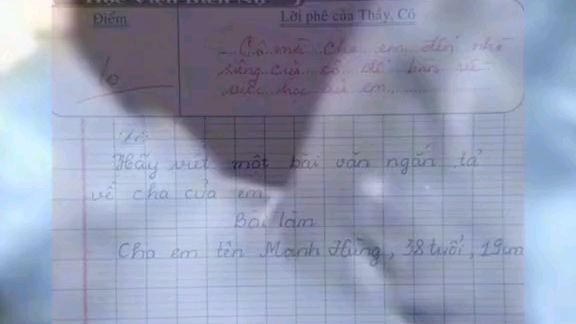 Điểm
Lời phê của Thầy, Cô
10
Cô mời cha em đến nhà
riêng của cô để bàn về
việc học của em.
Đề:
Hãy viết một bài văn ngắn tả
về cha của em.
Bài làm
Cha em tên Mạnh Hùng, 38 tuổi, 19cm